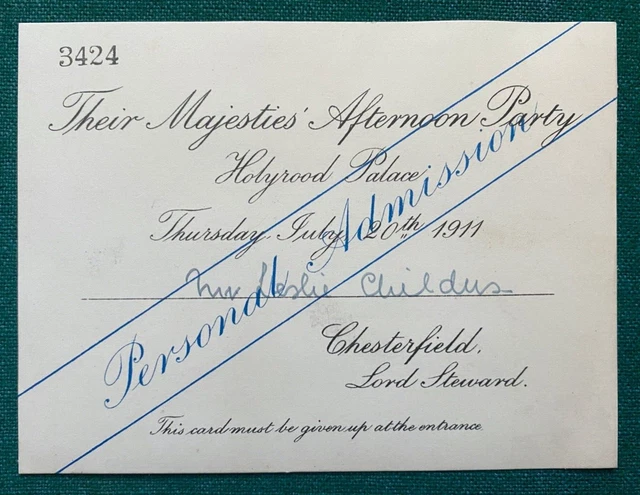 3424
Their Majesties' Afternoon Party
Holyrood Palace
Thursday, July, 20th 1911
Mr Leslie Childers
Personal Admission
Chesterfield,
Lord Steward.
This card must be given up at the entrance